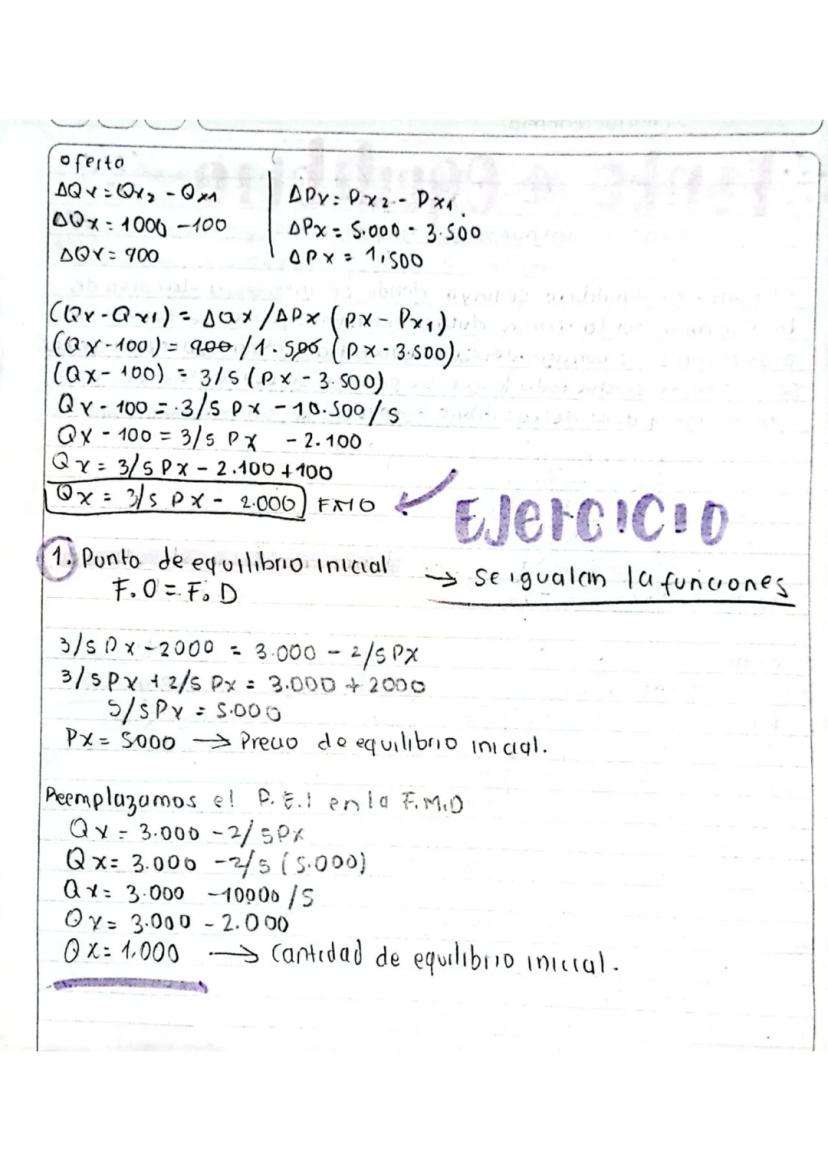 oferta
ΔQx = Qx2 - Qx1
ΔQx = 1000 - 100
ΔQx = 900
ΔPx = Px2 - Px1
ΔPx = 5.000 - 3.500
ΔPx = 1,500
(Qx - Qx1) = ΔQx/ΔPx (Px - Px1)
(Qx - 100) = 900/1.500 (Px - 3.500)
(Qx - 100) = 3/5 (Px - 3.500)
Qx - 100 = 3/5 Px - 10.500/5
Qx - 100 = 3/5 Px - 2.100
Qx = 3/5 Px - 2.100 + 100
Qx = 3/5 Px - 2.000 FMO
EJERCICIO
1. Punto de equilibrio inicial → se igualan la funciones
F.O = F.D
3/5 Px - 2000 = 3.000 - 2/5 Px
3/5 Px + 2/5 Px = 3.000 + 2000
5/5 Px = 5.000
Px = 5000 → Precio de equilibrio inicial.
Reemplazamos el P.E.I en la F.M.D
Qx = 3.000 - 2/5Px
Qx = 3.000 - 2/5 (5.000)
Qx = 3.000 - 10000/5
Qx = 3.000 - 2.000
Qx = 1.000 → Cantidad de equilibrio inicial.